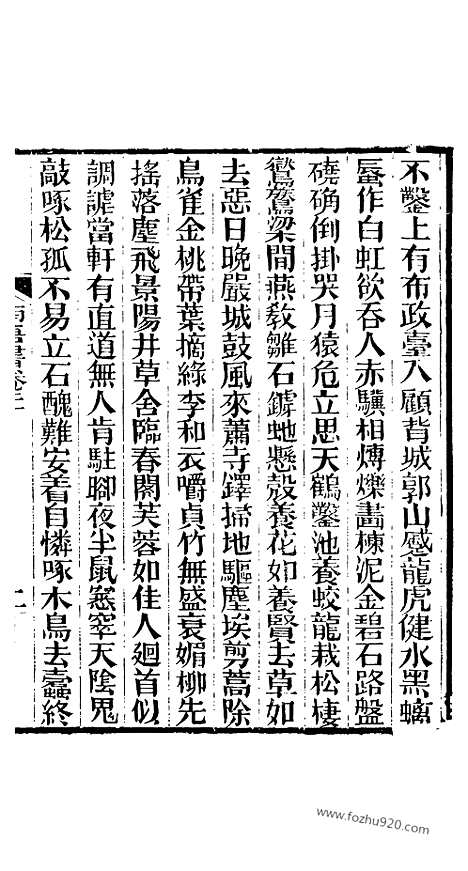 不鑿上有布政臺八顧背城郭山蹙龍虎健水黑螭
蜃作白虹欲吞人赤驥相𤏲爍畵棟泥金碧石路盤
磽确倒掛哭月猿危立思天鶴鑿池養蛟龍栽松棲
鸞鷟梁間燕教雛石罅虵懸殼養花如養賢去草如
去惡日晚嚴城鼓風來蕭寺鐸掃地驅塵埃剪蒿除
鳥雀金桃帶葉摘綠李和衣嚼貞竹無盛衰媚柳先
搖落塵飛景陽井草舍臨春閣芙蓉如佳人廻首似
調謔當軒有直道無人肯駐腳夜半鼠窸窣天陰鬼
敲啄松孤不易立石醜難安着自憐啄木鳥去蠹終
雨吾書卷三
二
www.fozhu920.com